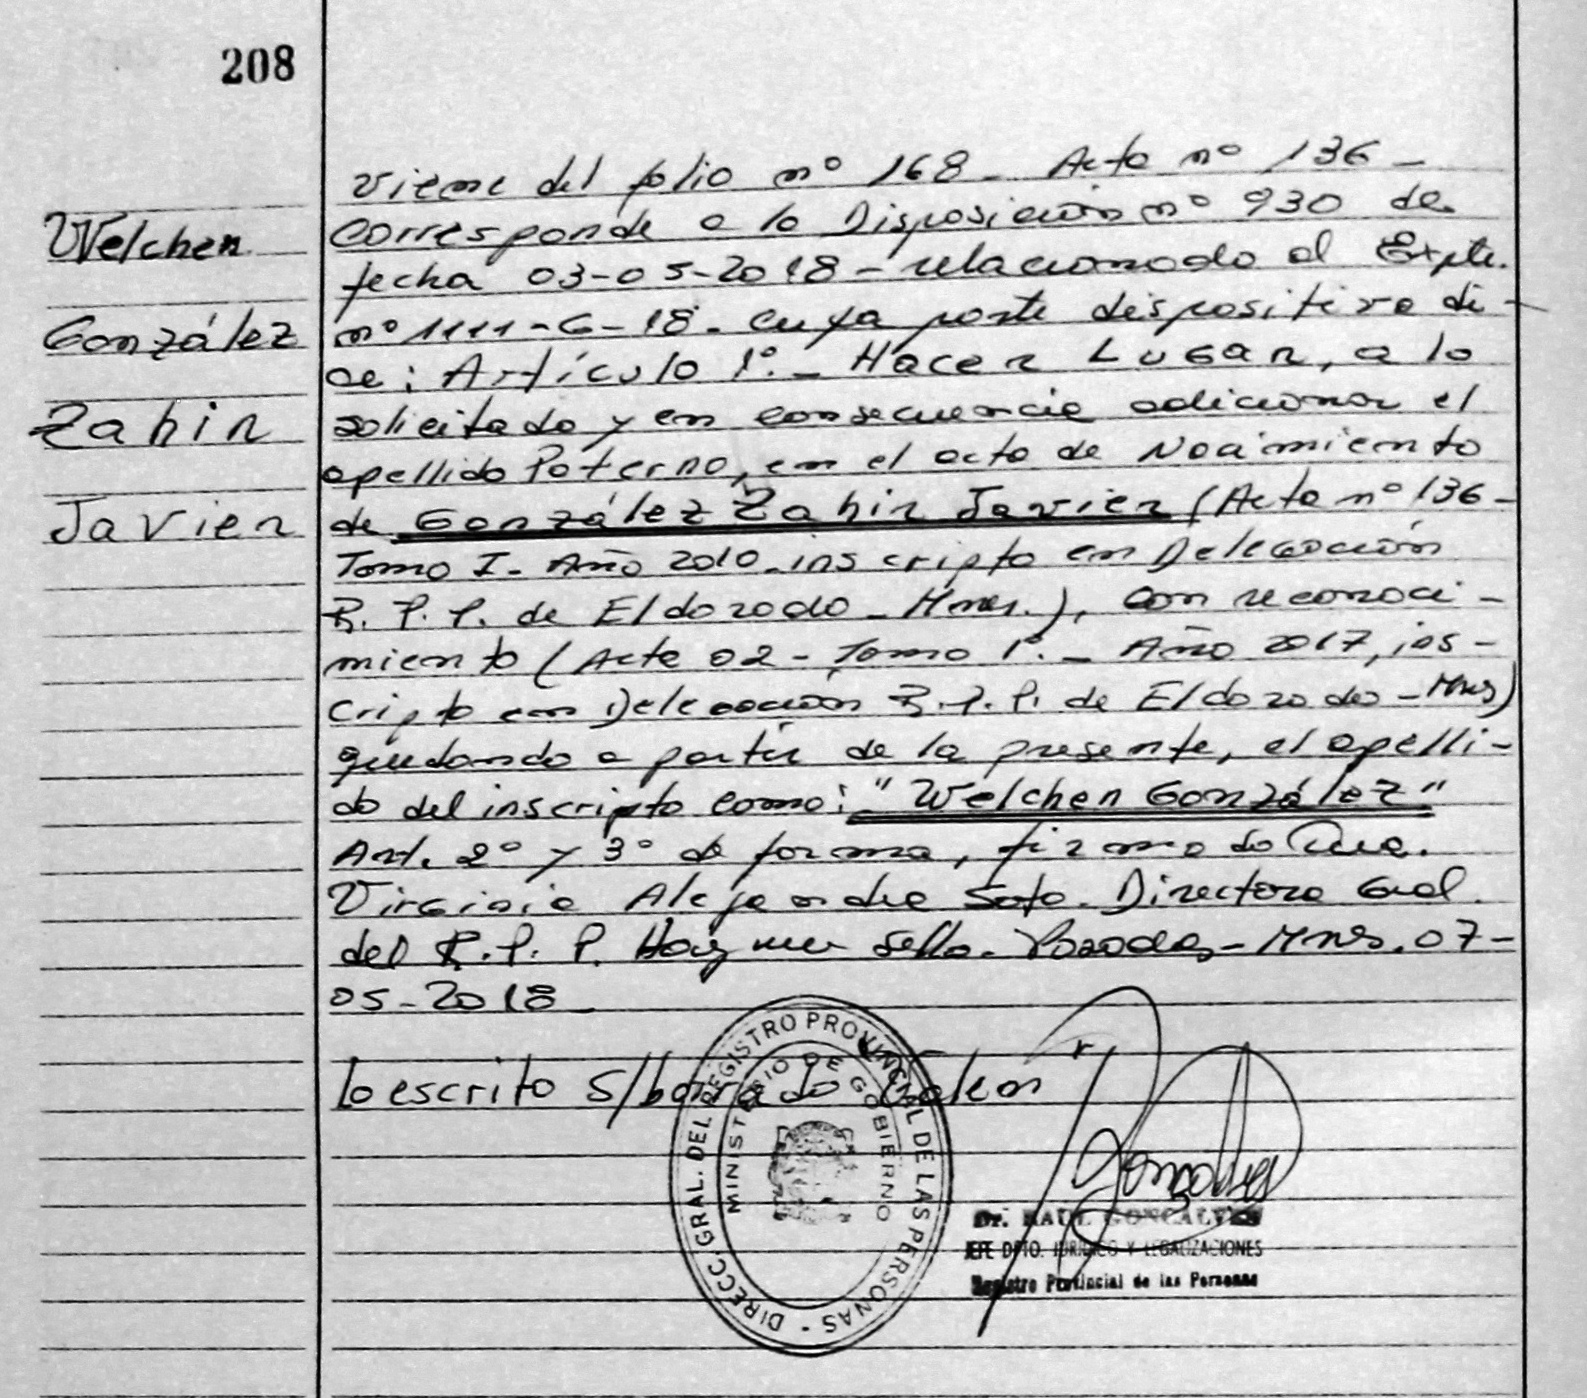 208
Welchen
González
Zahir
Javier
viene del folio nº 168 - Acta nº 136 -
Corresponde a la Disposición nº 930 de
fecha 03-05-2018 - relacionado al Expte.
nº 1111-G-18. cuya parte dispositiva di-
ce: Artículo 1º. - Hacer Lugar, a lo
solicitado y en consecuencia adicionar el
apellido Paterno, en el acta de Nacimiento
de González Zahir Javier (Acta nº 136-
Tomo I - Año 2010 - inscripta en Delegación
R. P. P. de Eldorado - Mnes.), con reconoci-
miento (Acta 02 - Tomo 1º. - Año 2017, ins-
cripto en Delegación R. P. P. de Eldorado - Mnes)
quedando a partir de la presente, el apelli-
do del inscripto como: "Welchen González"
Art. 2º y 3º de forma, firmado
Virginia Alejandra Soto. Directora Gral.
del R. P. P. Hay un sello. Posadas - Mnes. 07-
05-2018
Lo escrito s/borrado Valen
DIRECC. GRAL. DEL REGISTRO PROVINCIAL DE LAS PERSONAS -
MINISTERIO DE GOBIERNO
Dr. RAUL GONCALVES
JEFE DPTO. JURIDICO Y LEGALIZACIONES
Registro Provincial de las Personas